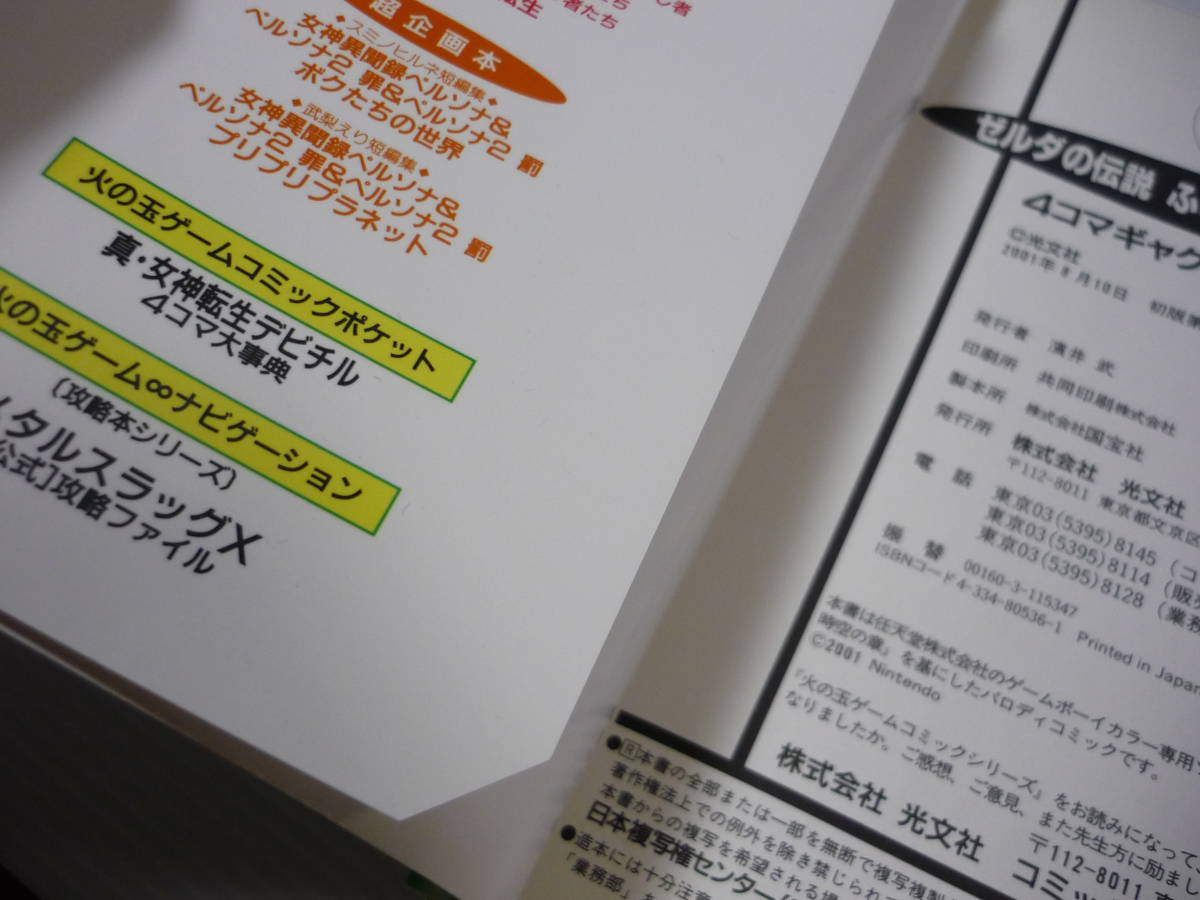 し者
者たち
転生
超企画本
◆スミノヒルネ短編集◆
女神異聞録ペルソナ&
ペルソナ2 罪&ペルソナ2 罰
ボクたちの世界
◆武梨えり短編集◆
女神異聞録ペルソナ&
ペルソナ2 罪&ペルソナ2 罰
プリプリプラネット
火の玉ゲームコミックポケット
真・女神転生デビチル
4コマ大事典
火の玉ゲーム∞ナビゲーション
(攻略本シリーズ)
メタルスラッグX
公式]攻略ファイル
ゼルダの伝説 ふ
4コマギャグ
©光文社
2001年9月10日 初版第
発行者 濱井 武
印刷所 共同印刷株式会社
製本所 株式会社国宝社
発行所 株式会社 光文社
〒112-8011 東京都文京区
電 話 東京03(5395)8145 (コ
東京03(5395)8114 (販売
東京03(5395)8128 (業務
振 替 00160-3-115347
ISBNコード4-334-80536-1 Printed in Japan
本書は任天堂株式会社のゲームボーイカラー専用
時空の章』を基にしたパロディコミックです。
©2001 Nintendo
『火の玉ゲームコミックシリーズ』をお読みになって、
なりましたか。ご感想、ご意見、また先生方に励まし
〒112-8011
株式会社 光文社 コミッ
●Ⓡ本書の全部または一部を無断で複写複製
著作権法上での例外を除き禁じられて
本書からの複写を希望される場
日本複写権センター(
●造本には十分注意
「業務部」